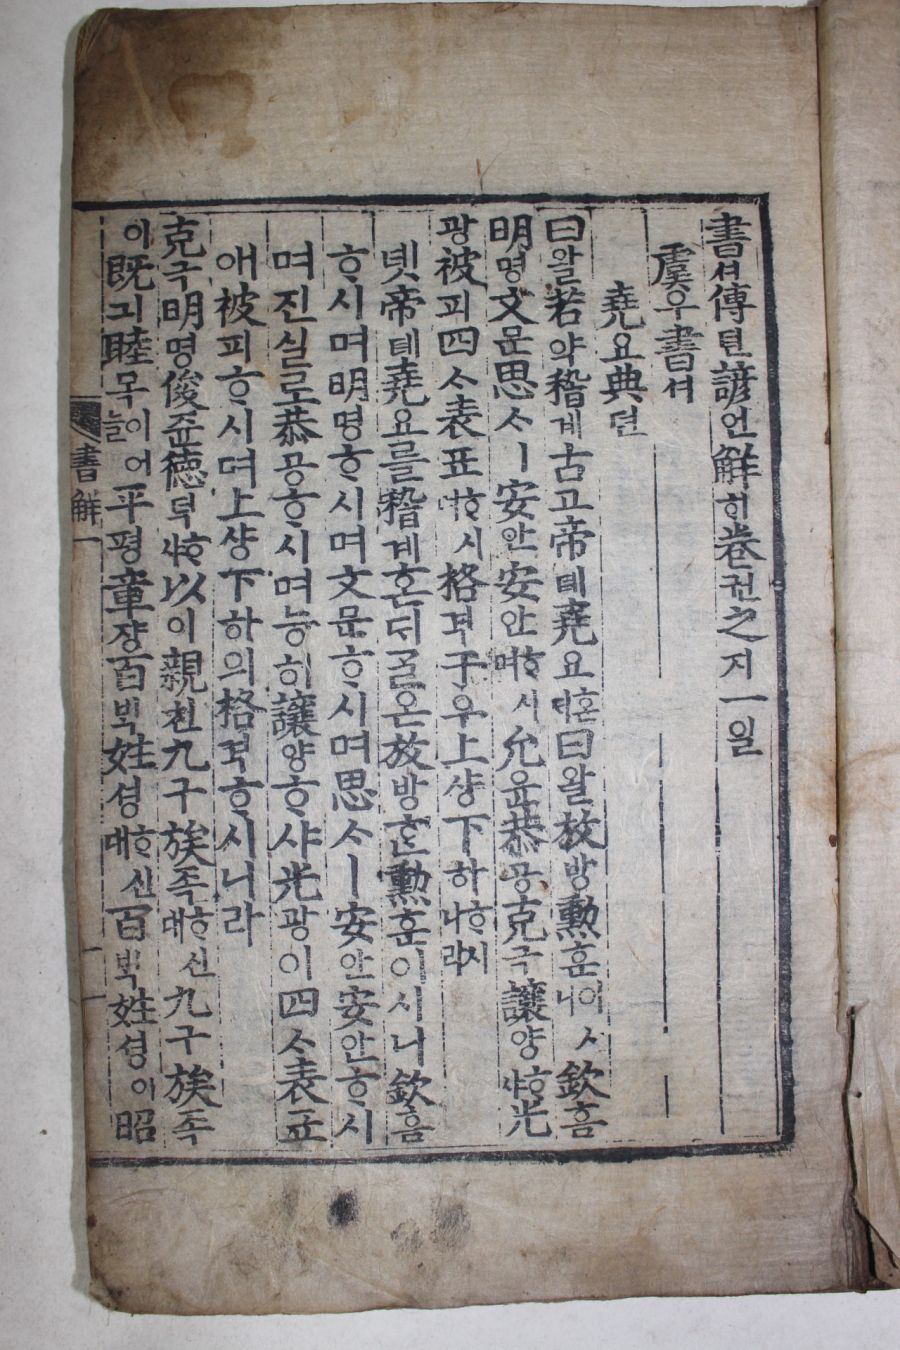 書셔傳뎐諺언解ᄒᆡ卷권之지一일
虞우書셔
堯요典뎐
曰왈若약稽계古고帝뎨堯요ᄒᆞᆫᄃᆡ曰왈放방勳훈이니欽흠
明명文문思ᄉᆞㅣ安안安안ᄒᆞ시며允윤恭공克극讓양ᄒᆞ샤光
광被피四ᄉᆞ表표ᄒᆞ시며格격于우上샹下하ᄒᆞ시니라
녯帝뎨堯요를稽계혼ᄃᆡ ᄀᆞᆯ온放방ᄒᆞᆫ勳훈이시니欽흠
ᄒᆞ시며明명ᄒᆞ시며文문ᄒᆞ시며思ᄉᆞㅣ安안安안ᄒᆞ시
며진실로恭공ᄒᆞ시며능히讓양ᄒᆞ샤光광이四ᄉᆞ表표
애被피ᄒᆞ시며上샹下하의格격ᄒᆞ시니라
克극明명俊쥰德덕ᄒᆞ샤以이親친九구族족ᄒᆞ신대九구族족
이旣긔睦목이어늘平평章쟝百ᄇᆡᆨ姓셩ᄒᆞ신대百ᄇᆡᆨ姓셩이昭
書解一